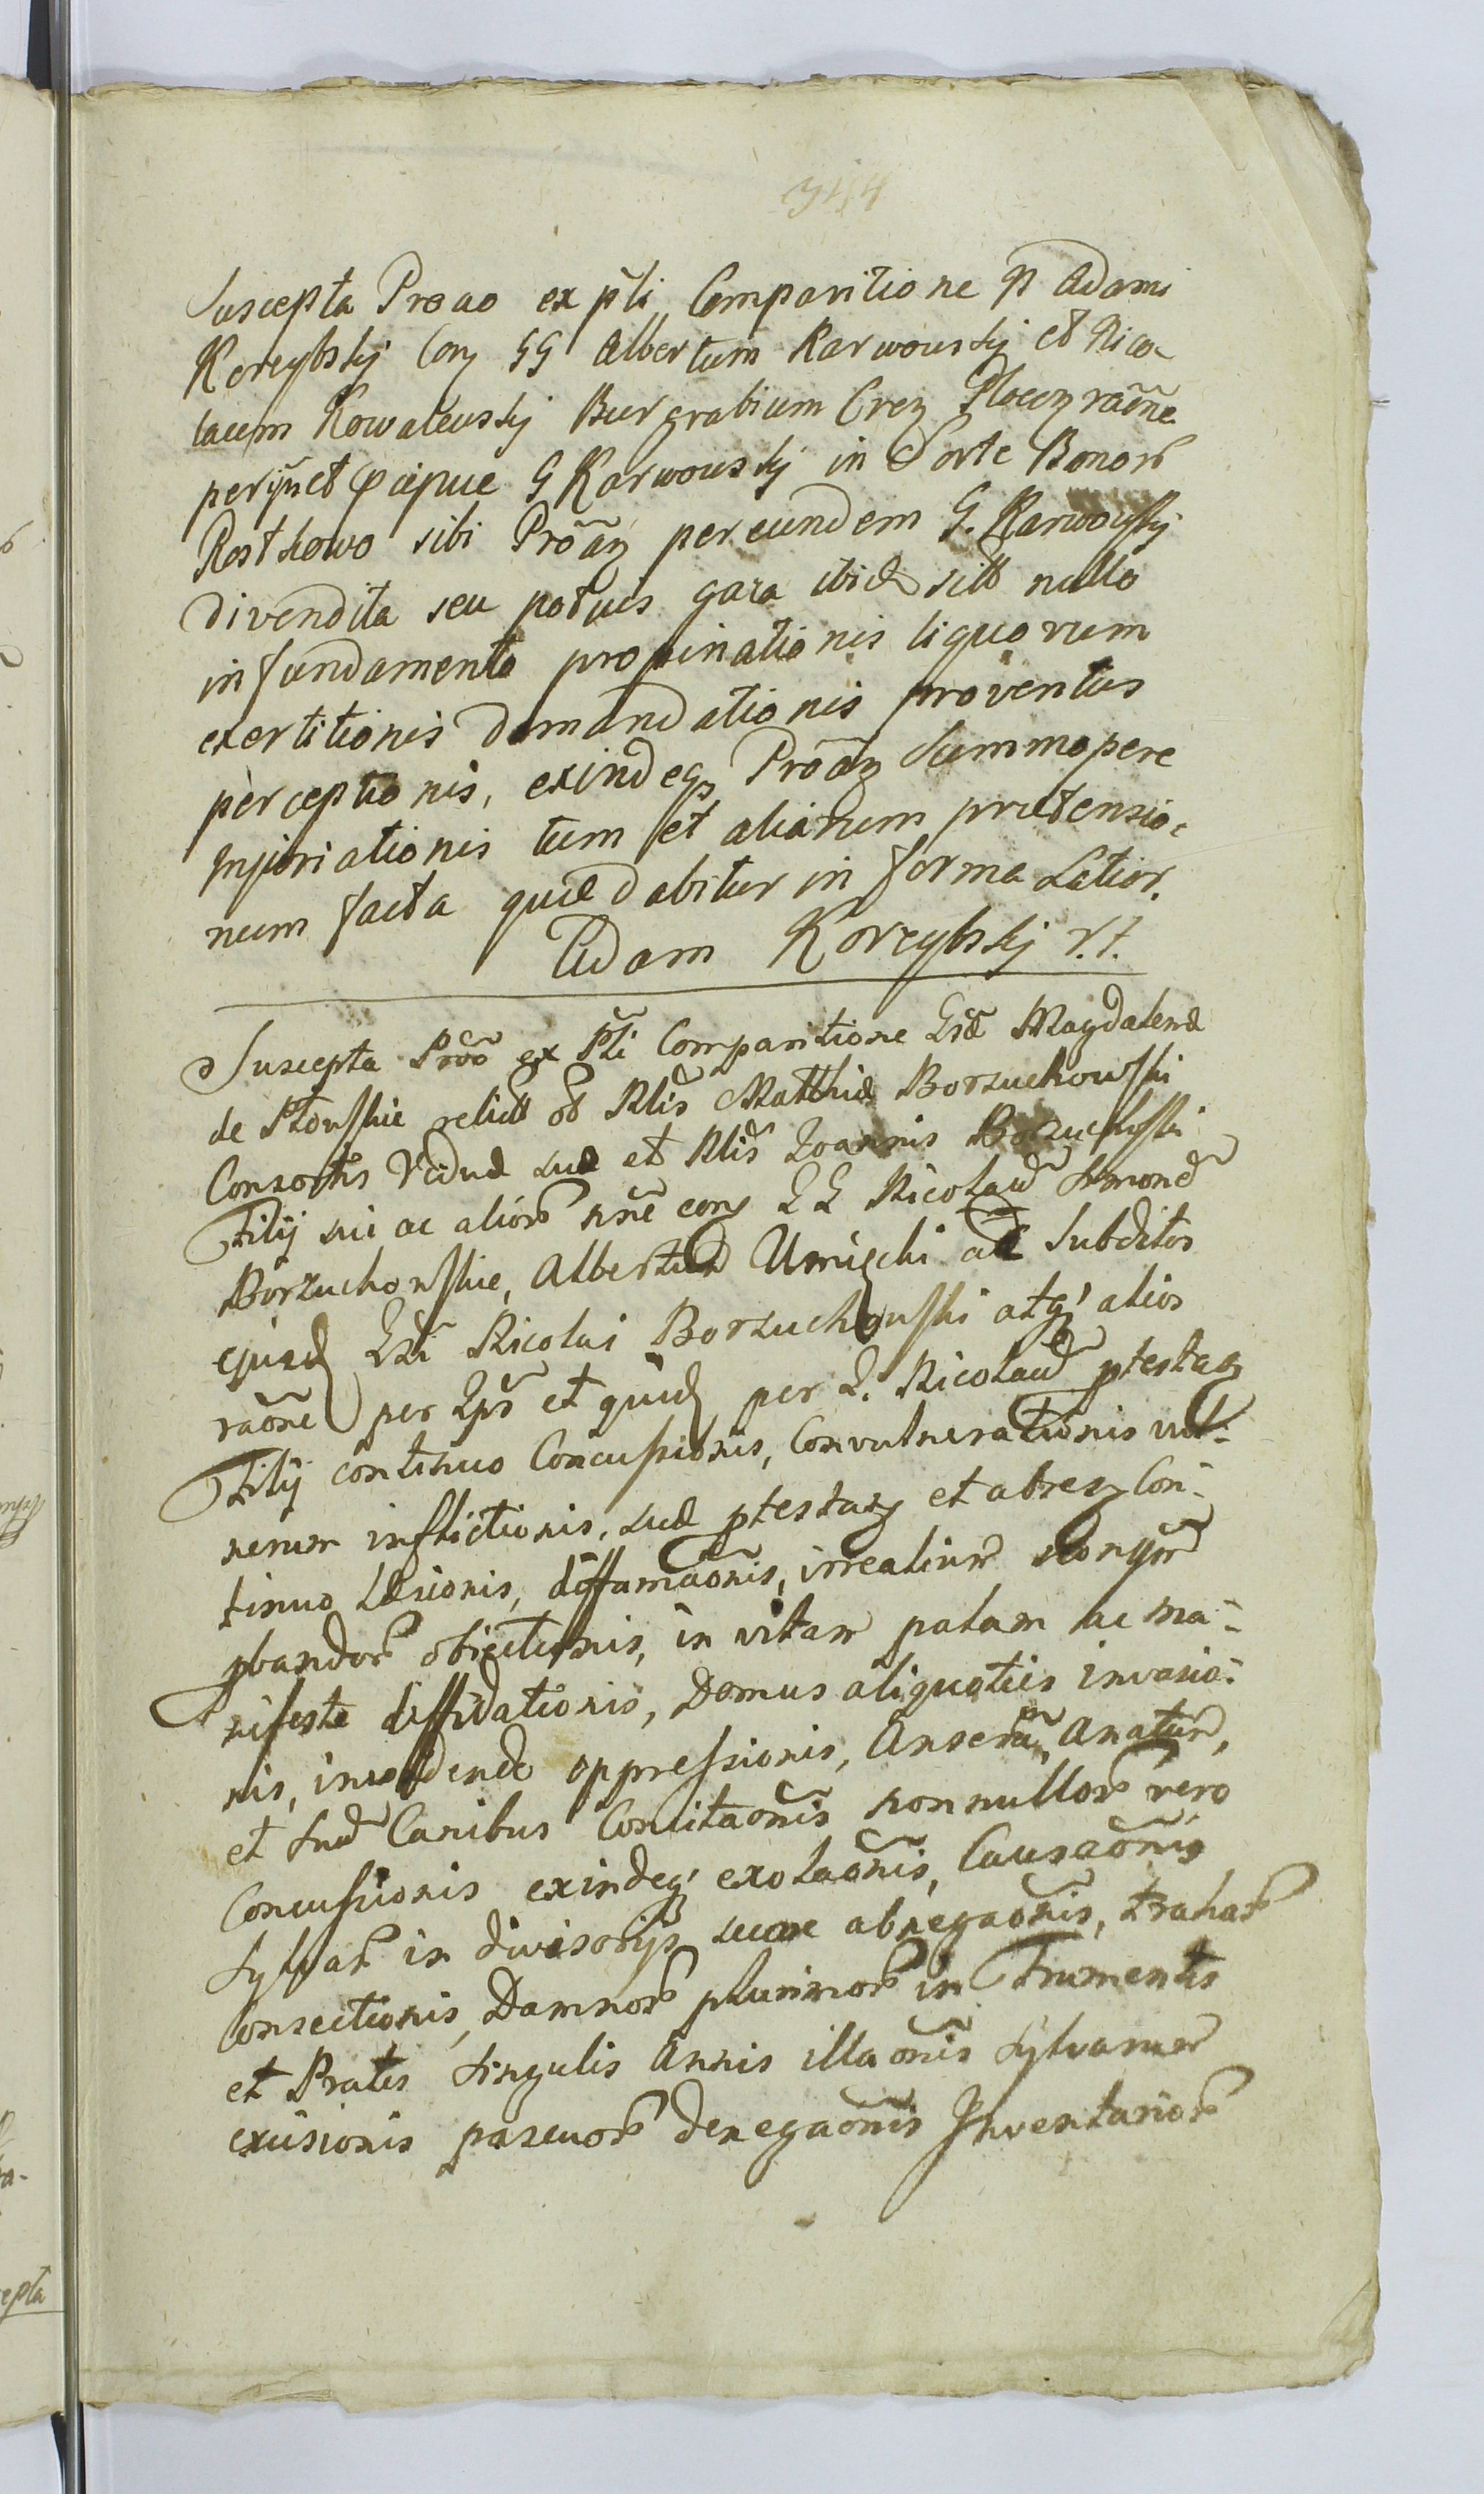 Suscepta Prõao ex pñti Comparitione G Adami
Korzybskij Con GG Albertum Karwowskj et Nico-
laum Kowalewskj Burgrabium Cren Plocen raõne
per ipm et pcipue G Karwowskj in Sorte Bonorũ
Rostkowo sibi Prõan per eundem G. Karwowskj
divendita seu potius gaza ibid sitt nullo
in fundamento propinationis liquorum
exertitionis demandationis proventus
perceptionis, exindeq Prõan summopere
injuriationis tum et aliarum prætensio-
num facta quæ dabitur in forma Latior.
Adam Korzybskj
Suscepta Prõo ex Pñti Comparitione Gsæ Magdalenæ
de Płonskie relictæ ol Nlis Matthiæ Borzuchowski
Consortis Viduæ suæ et Nlis Joannis Borzuchowski
Filij sui ac aliorũ nõe con GG Nicolaũ Simonẽ
Borzuchowskie, Albertum Umięcki ac Subditos
ejusd Gsi Nicolai Borzuchowski atq alios
raõne per Ipos et quid per G. Nicolaũ ptestan
Filij continuo Concussionis, Convulnerationis vul-
nerum inflictionis, suæ ptestan et abren Con-
tinuo Læsionis, diffamaõnis, irrealium
pbandorũ obiectionis, in vitam palam ac ma-
nifeste diffidationis, Domus aliquoties invasio-
nis, invadendo oppressionis, Anserũ Anatum,
et Suũ Canibus Concitaõnis nonnullorũ vero
Concussionis exindeq exolaõnis, Causaõnis
Sylvarũ in divisorijs suare abnegaõnis, trabarũ
Consectionis, Damnorũ plurimorũ in Frumentis
et Pratis singulis Annis illaõnis Sylvarum
excisionis pascuorũ denegaõnis Inventariorũ